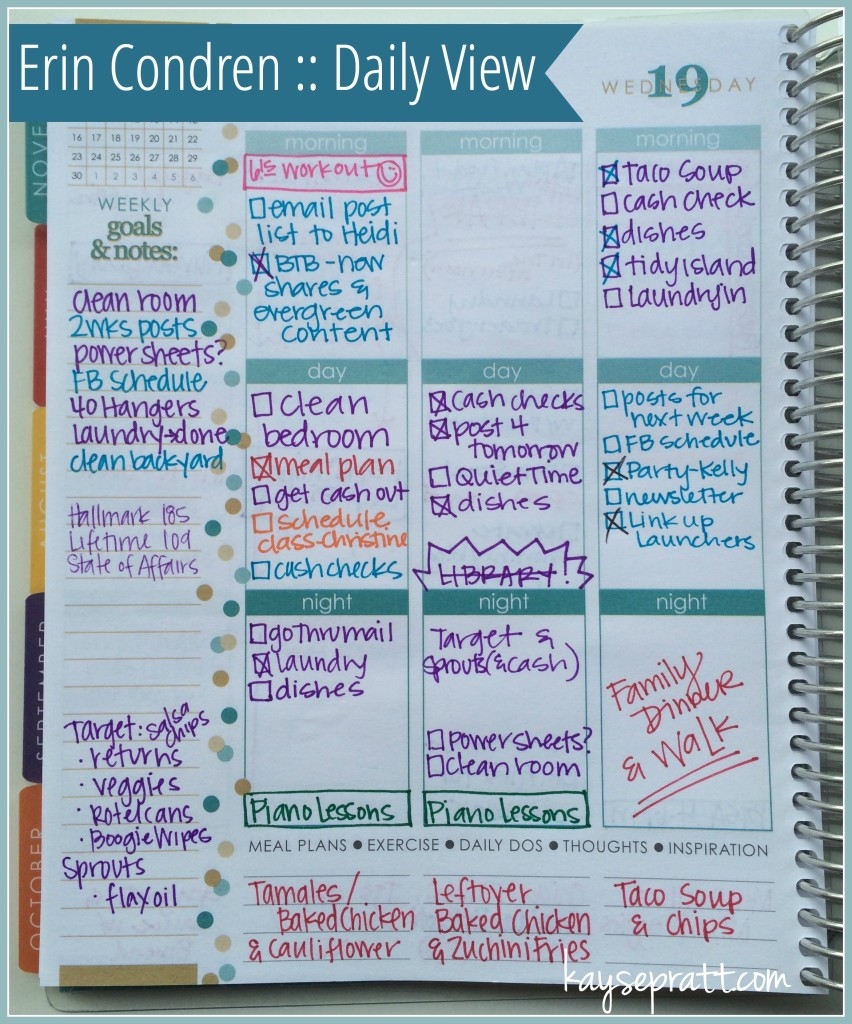 Erin Condren :: Daily View
19
WEDNESDAY
NOVE
AUGUST
SEPTEMBER
OCTOBER
16 17 18 19 20 21 22
23 24 25 26 27 28 29
30 1 2 3 4 5 6
WEEKLY
goals
& notes:
clean room
2wks posts
powersheets?
FB Schedule
40 Hangers
laundry→done
clean backyard
Hallmark 185
Lifetime 109
State of Affairs
Target: salsa
chips
· returns
· veggies
· Rotel cans
· Boogie Wipes
Sprouts
· flax oil
morning
workout
email post
list to Heidi
BTB - new
shares &
evergreen
content
day
clean
bedroom
meal plan
get cash out
schedule
class-christine
cash checks
night
go thru mail
laundry
dishes
Piano Lessons
morning
day
Cash checks
post 4
tomorrow
Quiet Time
dishes
LIBRARY!
night
Target &
Sprouts (& cash)
Powersheets?
Clean room
Piano Lessons
morning
Taco Soup
cash check
dishes
tidy island
laundry in
day
posts for
next week
FB schedule
Party-Kelly
newsletter
Link up
Launchers
night
Family
Dinner
& Walk
MEAL PLANS ● EXERCISE ● DAILY DOS ● THOUGHTS ● INSPIRATION
Tamales/
Baked Chicken
& Cauliflower
Leftover
Baked Chicken
& Zuchini Fries
Taco Soup
& Chips
kaysepratt.com